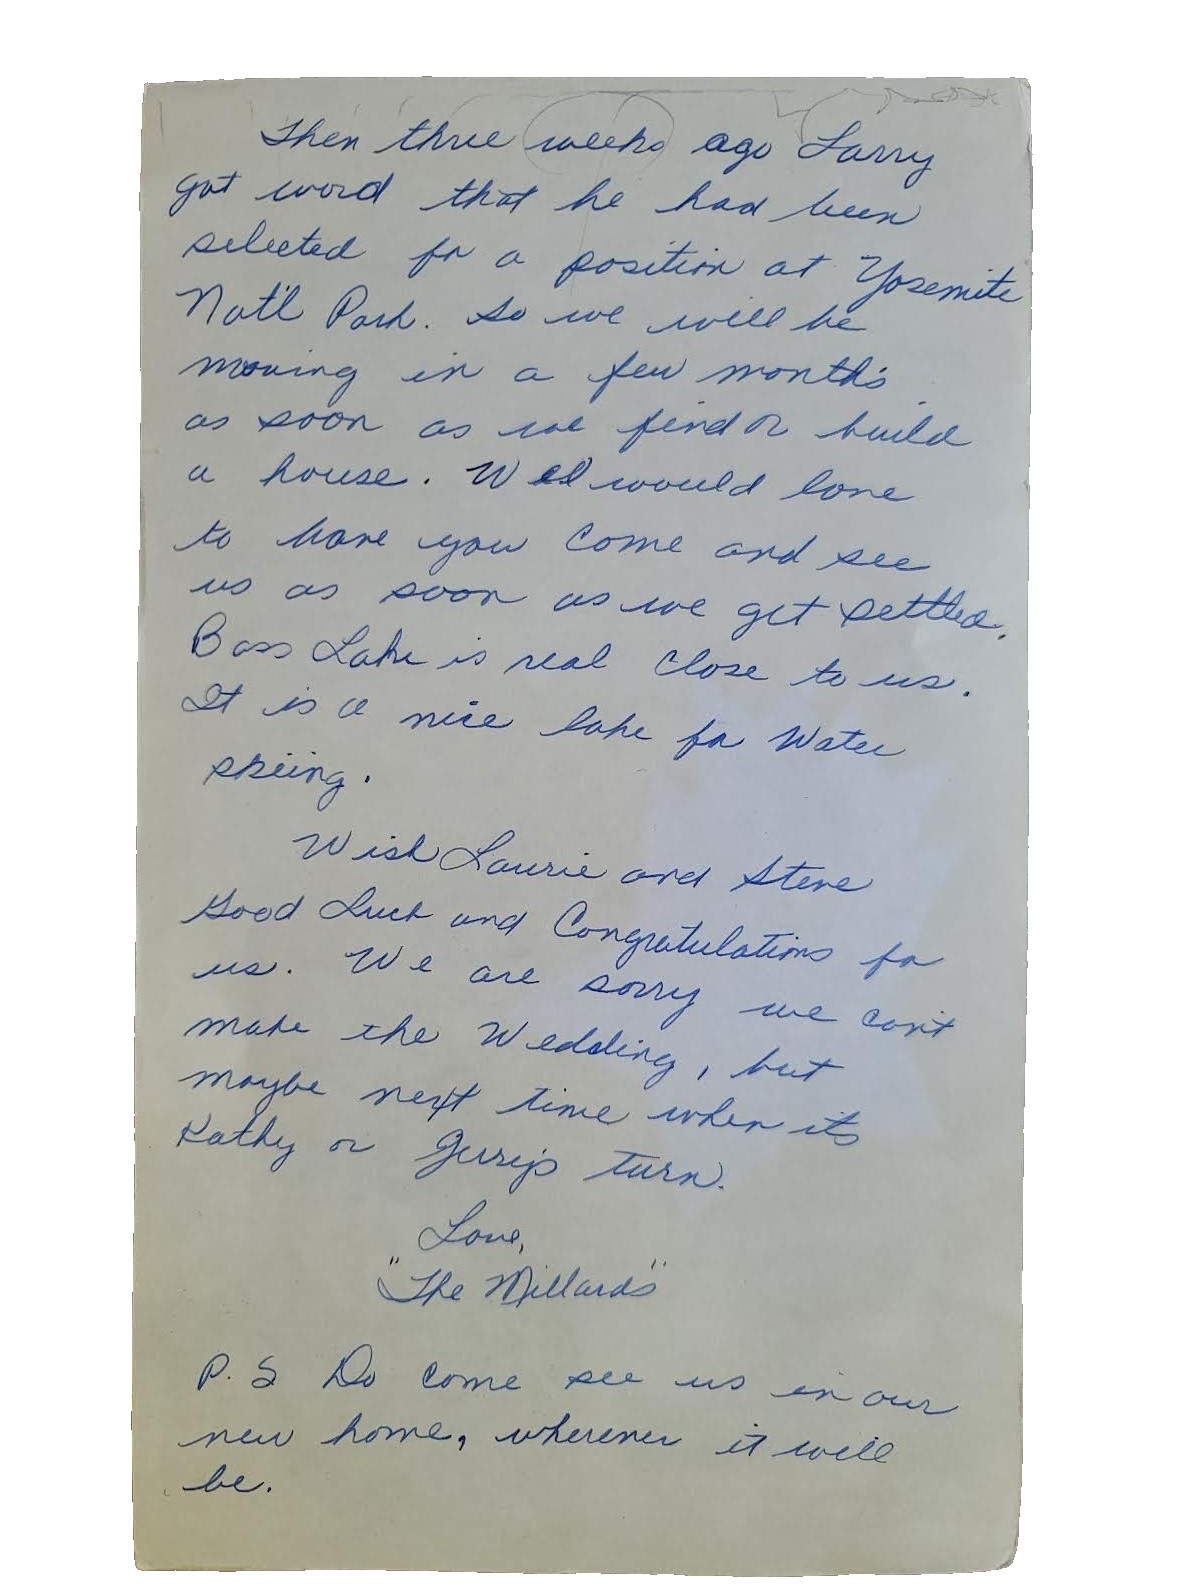 Then three weeks ago Larry
got word that he had been
selected for a position at Yosemite
Nat'l Park. So we will be
moving in a few months
as soon as we find or build
a house. We would love
to have you come and see
us as soon as we get settled.
Bass Lake is real close to us.
It is a nice lake for Water
skiing.
Wish Laurie and Steve
Good Luck and Congratulations for
us. We are sorry we can't
make the Wedding, but
maybe next time when its
Kathy or Jerry's turn.
Love,
"The Millards"
P.S Do come see us in our
new home, wherever it will
be.